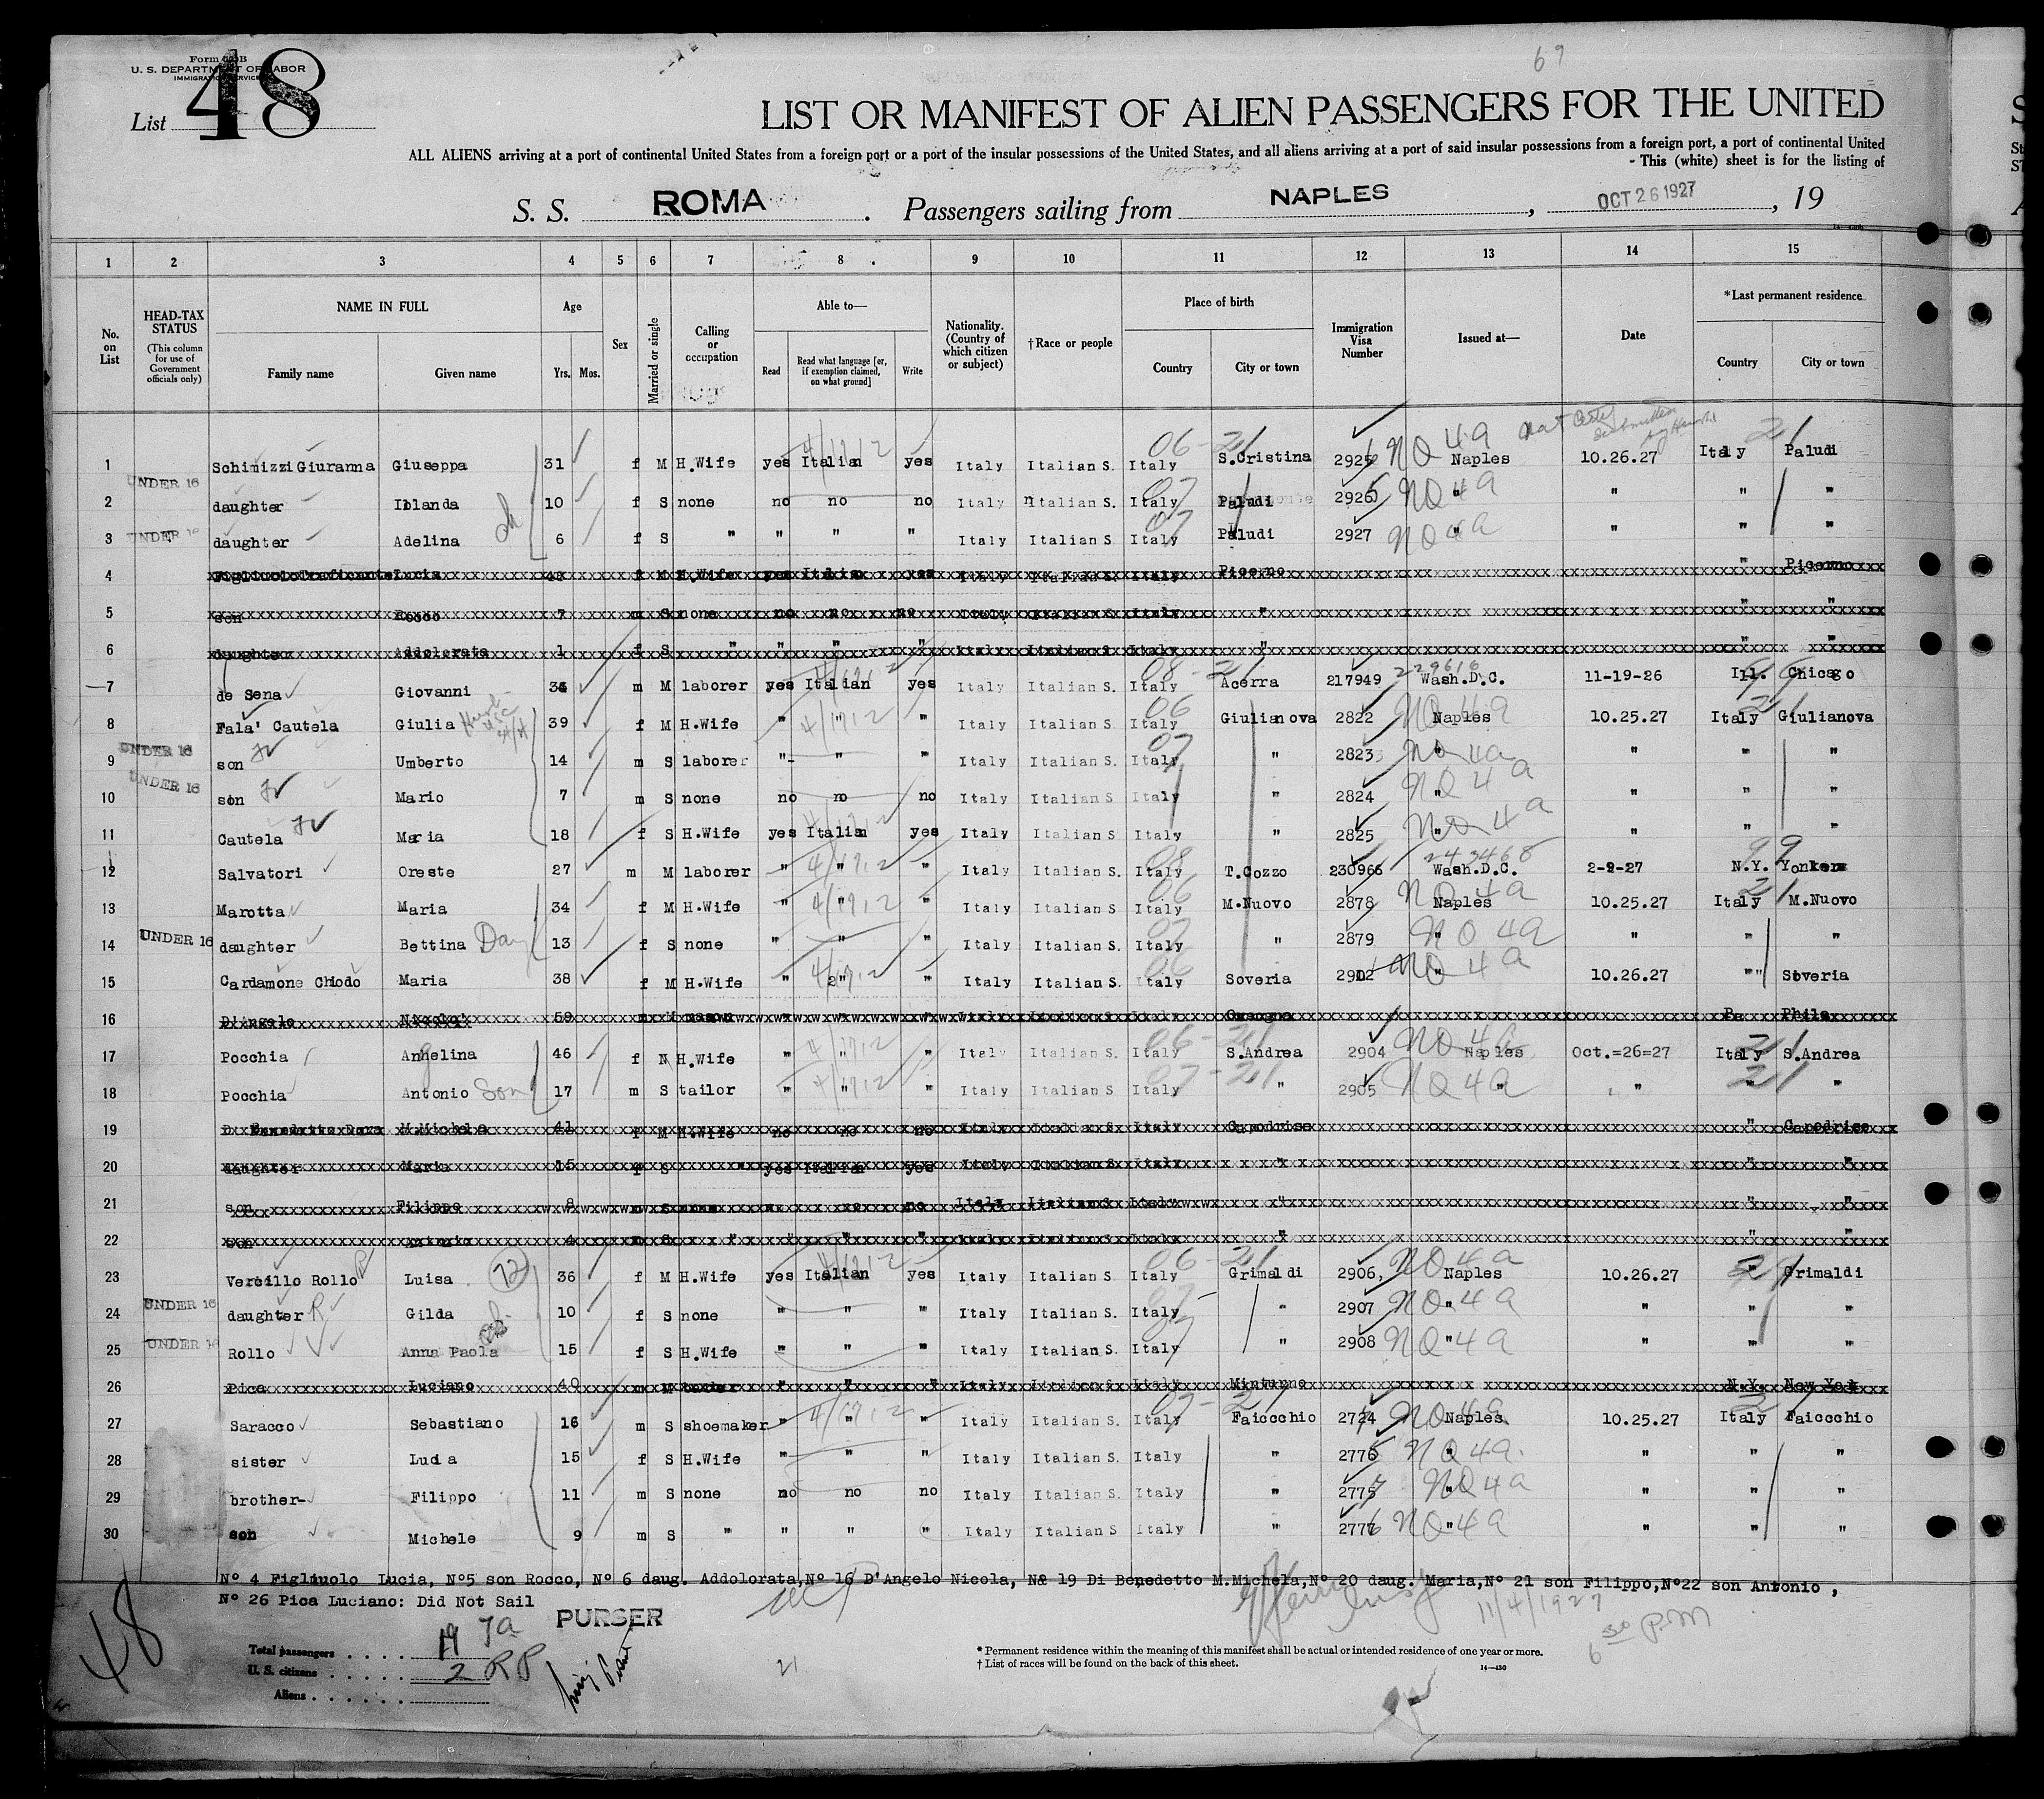 69
Form 630B
U. S. DEPARTMENT OF LABOR
IMMIGRATION SERVICE
List 48
LIST OR MANIFEST OF ALIEN PASSENGERS FOR THE UNITED
ALL ALIENS arriving at a port of continental United States from a foreign port or a port of the insular possessions of the United States, and all aliens arriving at a port of said insular possessions from a foreign port, a port of continental United
This (white) sheet is for the listing of
S. S. ROMA. Passengers sailing from NAPLES, OCT 26 1927, 19
1 2 3 4 5 6 7 8 9 10 11 12 13 14 15
No. on List HEAD-TAX STATUS (This column for use of Government officials only) NAME IN FULL Family name Given name Age Yrs. Mos. Sex Married or single Calling or occupation Able to— Read Read what language [or, if exemption claimed, on what ground] Write Nationality. (Country of which citizen or subject) †Race or people Place of birth Country City or town Immigration Visa Number Issued at— Date *Last permanent residence Country City or town
1 Schimizzi Giuranna Giuseppa 31 f M H.Wife yes Italian yes Italy Italian S. Italy S.Cristina 2925 NQ 4a Naples 10.26.27 Italy Paludi
2 UNDER 16 daughter Iolanda 10 f S none no no no Italy Italian S. Italy Paludi 2926 NQ 4a " " " "
3 UNDER 16 daughter Adelina 6 f S " " " " Italy Italian S. Italy Paludi 2927 NQ 4a " " " "
4 Figliuolo Traficante Lucia 43 f M H.Wife yes Italian yes Italy Italian S. Italy Picerno " Picerno
5 son Rocco 7 m S none no no no Italy Italian S. Italy " " "
6 daughter Addolorata 1 f S " " " " Italy Italian S. Italy " " "
7 de Sena Giovanni 34 m M laborer yes Italian yes Italy Italian S. Italy Acerra 217949 229616 Wash.D.C. 11-19-26 Ill. Chicago
8 Fala' Cautela Giulia 39 f M H.Wife " " " Italy Italian S. Italy Giulianova 2822 NQ 4a Naples 10.25.27 Italy Giulianova
9 UNDER 16 son Umberto 14 m S laborer " " " Italy Italian S. Italy " 2823 NQ 4a " " " "
10 UNDER 16 son Mario 7 m S none no no no Italy Italian S Italy " 2824 NQ 4a " " " "
11 Cautela Maria 18 f S H.Wife yes Italian yes Italy Italian S Italy " 2825 NQ 4a " " " "
12 Salvatori Oreste 27 m M laborer " " " Italy Italian S. Italy T.Cozzo 230966 243468 Wash.D.C. 2-9-27 N.Y. Yonkers
13 Marotta Maria 34 f M H.Wife " " " Italy Italian S Italy M.Nuovo 2878 NQ 4a Naples 10.25.27 Italy M.Nuovo
14 UNDER 16 daughter Bettina 13 f S none " " " Italy Italian S. Italy " 2879 NQ 4a " " " "
15 Cardamone Chiodo Maria 38 f M H.Wife " " " Italy Italian S. Italy Soveria 2902 NQ 4a " 10.26.27 " Soveria
16 D'Angelo Nicola 59 m M mason " " " Italy Italian S. Italy Pa Phila
17 Pocchia Anhelina 46 f N H.Wife " " " Italy Italian S. Italy S.Andrea 2904 NQ 4a Naples Oct.=26=27 Italy S.Andrea
18 Pocchia Antonio Son 17 m S tailor " " " Italy Italian S Italy " 2905 NQ 4a " " " "
19 D. Benedetto Dora M.Michela 41 f M H.Wife no no no Italy Italian S. Italy Capodrise " Capodrise
20 daughter Maria 15 f S " yes Italian yes Italy Italian S Italy " " "
21 son Filippo 8 m S none no no no Italy Italian S Italy " " "
22 son Antonio 4 m S " " " " Italy Italian S. Italy " " "
23 Vercillo Rollo Luisa 12 36 f M H.Wife yes Italian yes Italy Italian S. Italy Grimaldi 2906 NQ 4a Naples 10.26.27 " Grimaldi
24 UNDER 16 daughter R Gilda 10 f S none " " " Italy Italian S. Italy " 2907 NQ 4a " " " "
25 UNDER 16 Rollo Anna Paola 15 f S H.Wife " " " Italy Italian S. Italy " 2908 NQ 4a " " " "
26 Pica Luciano 40 m M " " " Italy Italian S. Italy Minturno N.Y. New York
27 Saracco Sebastiano 16 m S shoemaker " " " Italy Italian S. Italy Faicchio 2724 NQ 4a Naples 10.25.27 Italy Faicchio
28 sister Lucia 15 f S H.Wife " " " Italy Italian S. Italy " 2776 NQ 4a " " " "
29 brother- Filippo 11 m S none no no no Italy Italian S. Italy " 2775 NQ 4a " " " "
30 son Michele 9 m S " " " " Italy Italian S Italy " 2777 NQ 4a " " " "
Nº 4 Figliuolo Lucia, Nº5 son Rocco, Nº 6 daug. Addolorata,Nº 16 D'Angelo Nicola, Nº 19 Di Benedetto M.Michela,Nº 20 daug. Maria,Nº 21 son Filippo,Nº22 son Antonio ,
Nº 26 Pica Luciano: Did Not Sail
PURSER
11/4/1927
6 30 P.M
48
Total passengers . . . . 19 7a
U. S. citizens . . . . . 2 RP
Aliens . . . . . .
21
* Permanent residence within the meaning of this manifest shall be actual or intended residence of one year or more.
† List of races will be found on the back of this sheet.
14—430